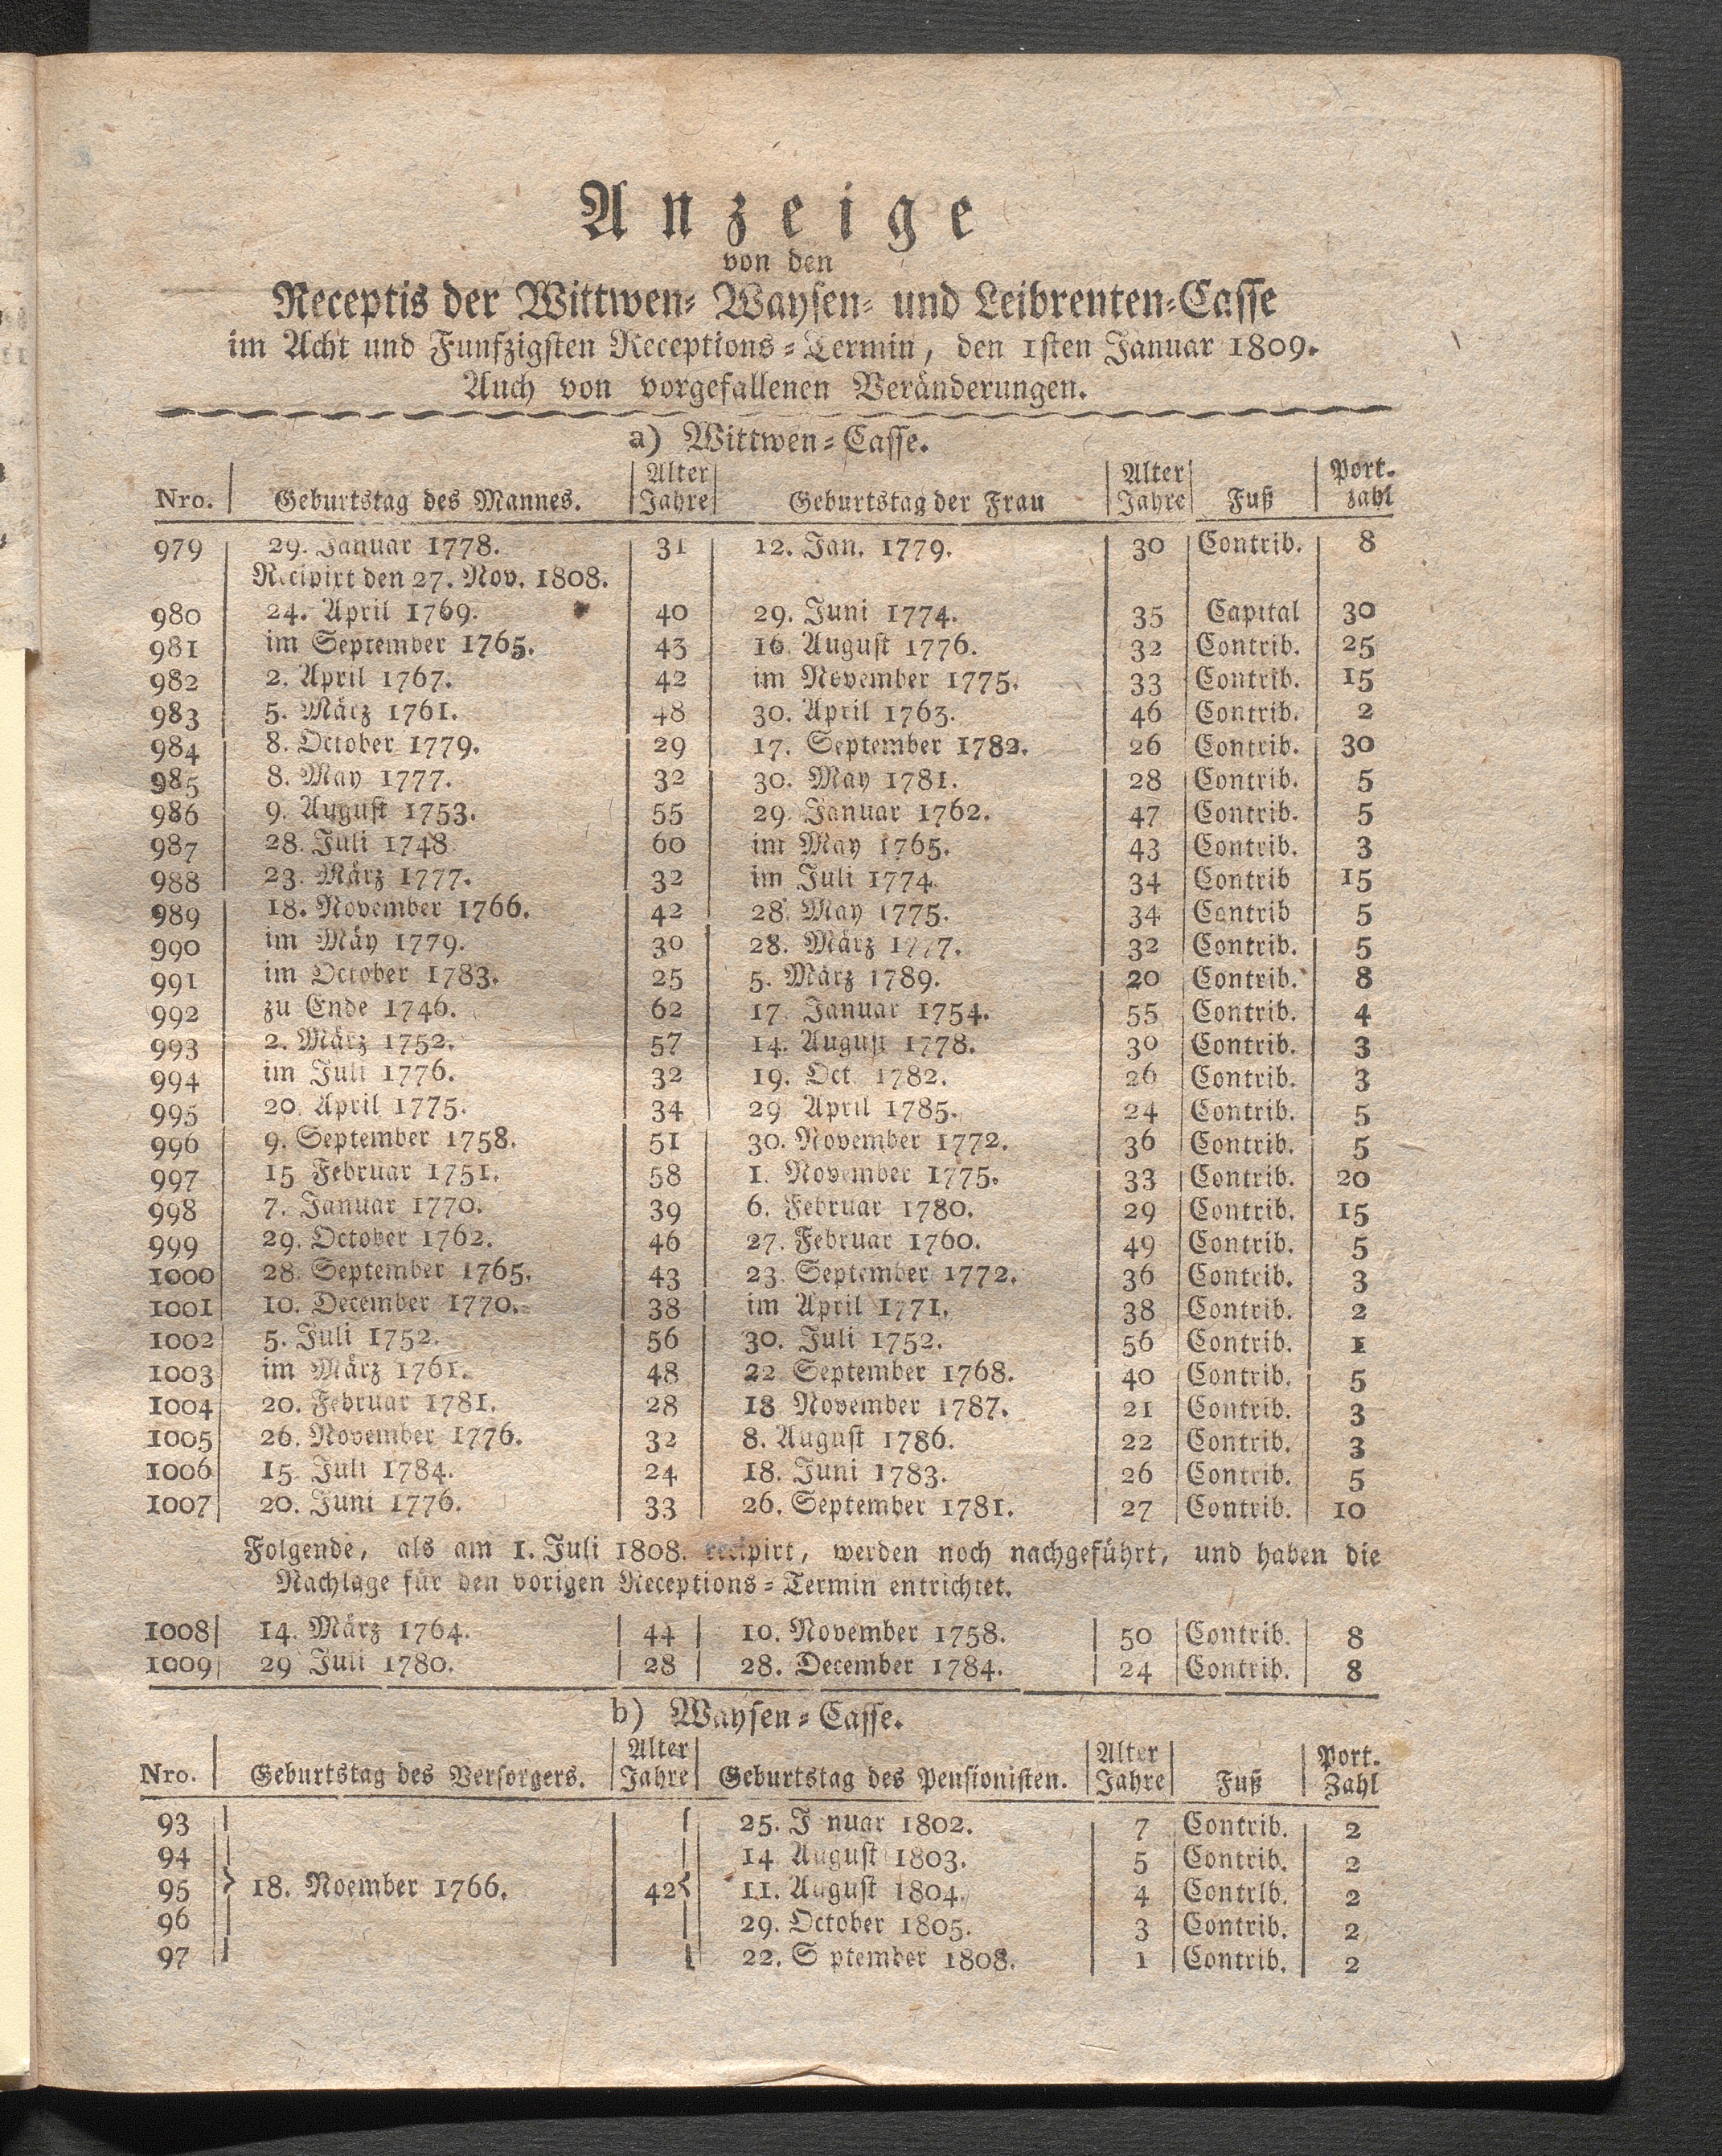 Anzeige
von den
Receptis der Wittwen- Waysen- und Leibrenten-Casse
im Acht und Funfzigsten Receptions-Termin, den 1sten Januar 1809.
Auch von vorgefallenen Veränderungen.
a) Wittwen-Casse.
Nro. Geburtstag des Mannes. Alter Jahre Geburtstag der Frau Alter Jahre Fuß Port. zahl
979 29. Januar 1778. 31 12. Jan. 1779. 30 Contrib. 8
Recipirt den 27. Nov. 1808.
980 24. April 1769. 40 29. Juni 1774. 35 Capital 30
981 im September 1765. 43 16. August 1776. 32 Contrib. 25
982 2. April 1767. 42 im November 1775. 33 Contrib. 15
983 5. März 1761. 48 30. April 1763. 46 Contrib. 2
984 8. October 1779. 29 17. September 1782. 26 Contrib. 30
985 8. May 1777. 32 30. May 1781. 28 Contrib. 5
986 9. August 1753. 55 29. Januar 1762. 47 Contrib. 5
987 28. Juli 1748 60 im May 1765. 43 Contrib. 3
988 23. März 1777. 32 im Juli 1774. 34 Contrib 15
989 18. November 1766. 42 28. May 1775. 34 Contrib 5
990 im Mäy 1779. 30 28. März 1777. 32 Contrib. 5
991 im October 1783. 25 5. März 1789. 20 Contrib. 8
992 zu Ende 1746. 62 17. Januar 1754. 55 Contrib. 4
993 2. März 1752. 57 14. August 1778. 30 Contrib. 3
994 im Juli 1776. 32 19. Oct. 1782. 26 Contrib. 3
995 20. April 1775. 34 29. April 1785. 24 Contrib. 5
996 9. September 1758. 51 30. November 1772. 36 Contrib. 5
997 15 Februar 1751. 58 1. November 1775. 33 Contrib. 20
998 7. Januar 1770. 39 6. Februar 1780. 29 Contrib. 15
999 29. October 1762. 46 27. Februar 1760. 49 Contrib. 5
1000 28. September 1765. 43 23. September 1772. 36 Contrib. 3
1001 10. December 1770. 38 im April 1771. 38 Contrib. 2
1002 5. Juli 1752. 56 30. Juli 1752. 56 Contrib. 1
1003 im März 1761. 48 22 September 1768. 40 Contrib. 5
1004 20. Februar 1781. 28 18 November 1787. 21 Contrib. 3
1005 26. November 1776. 32 8. August 1786. 22 Contrib. 3
1006 15. Juli 1784. 24 18. Juni 1783. 26 Contrib. 5
1007 20. Juni 1776. 33 26. September 1781. 27 Contrib. 10
Folgende, als am 1. Juli 1808. recipirt, werden noch nachgeführt, und haben die
Nachlage für den vorigen Receptions-Termin entrichtet.
1008 14. März 1764. 44 10. November 1758. 50 Contrib. 8
1009 29 Juli 1780. 28 28. December 1784. 24 Contrib. 8
b) Waysen-Casse.
Nro. Geburtstag des Versorgers. Alter Jahre Geburtstag des Pensionisten. Alter Jahre Fuß Port. Zahl
93 25. J nuar 1802. 7 Contrib. 2
94 14 August 1803. 5 Contrib. 2
95 18. Noember 1766. 42 11. August 1804. 4 Contrib. 2
96 29. October 1805. 3 Contrib. 2
97 22. S ptember 1808. 1 Contrib. 2